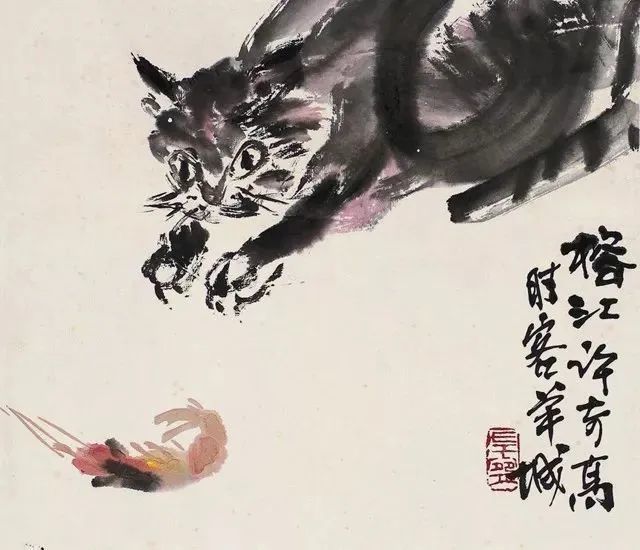 榕江许奇高
时客羊城